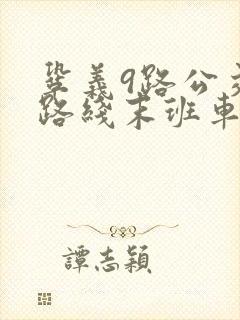 鞏義9路公交
路綫末班車
譚志穎